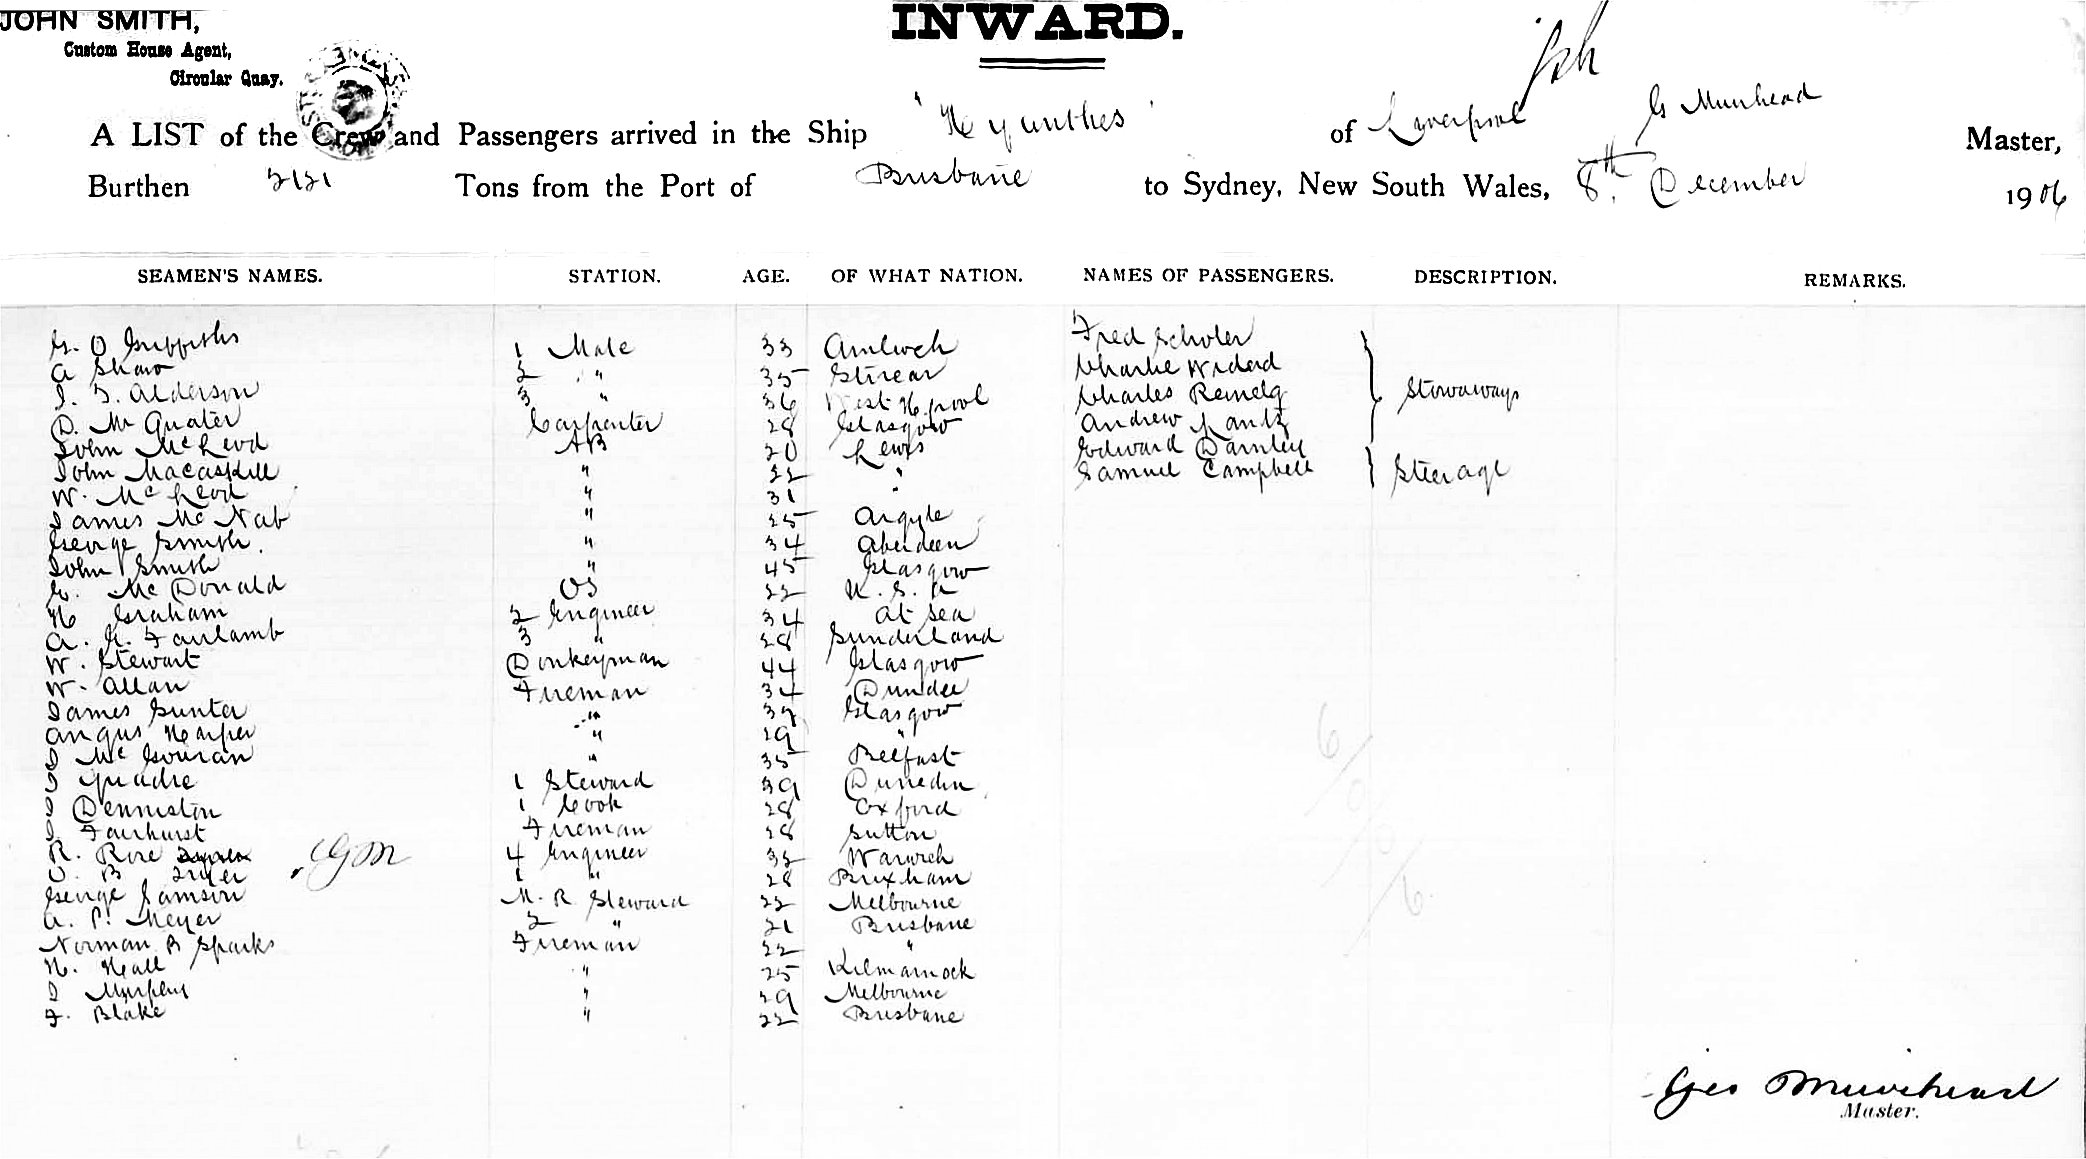 JOHN SMITH,
Custom House Agent,
Circular Quay.
INWARD.
A LIST of the Crew and Passengers arrived in the Ship of Liverpool G Muirhead Master,
Burthen 2121 Tons from the Port of Brisbane to Sydney, New South Wales, 8th December 1906
SEAMEN'S NAMES. STATION. AGE. OF WHAT NATION. NAMES OF PASSENGERS. DESCRIPTION. REMARKS.
G. O Griffiths 1 Mate 33 Amlwch Fred Scholer
A Shaw 2 " 35 Charlie
J. F. Alderson 3 " 36 West H.pool Charles Stowaways
D. Mc Quater Carpenter 28 Glasgow Andrew Lantz
John McLeod AB 20 Lewis Edward Darnley
John Macaskill " 22 " Samuel Campbell Steerage
W. McLeod " 31 "
James McNab " 25 Argyle
George Smith. " 34 Aberdeen
John Smith " 45 Glasgow
G. McDonald OS 22 U.S.A
H Graham 2 Engineer 34 At Sea
A. G. Fairlamb 3 " 28 Sunderland
W. Stewart Donkeyman 44 Glasgow
W. Allan Fireman 34 Dundee
James Gunter " 32 Glasgow
Angus Harper " 29 "
J McGouran " 35 Belfast
J 1 Steward 39 Dunedin
J Denniston 1 Cook 28 Oxford
J Fairhurst Fireman 28 Sutton
R. Rore GM 4 Engineer 32 Warwick
1 " 28 Brixham
George Samson M. R. Steward 22 Melbourne
A. P. Meyer 2 " 21 Brisbane
Norman B Sparks Fireman 22 "
H. Hall " 25 Kilmarnock
J Murphy " 29 Melbourne
F. Blake " 22 Brisbane
Geo Muirhead
Master.